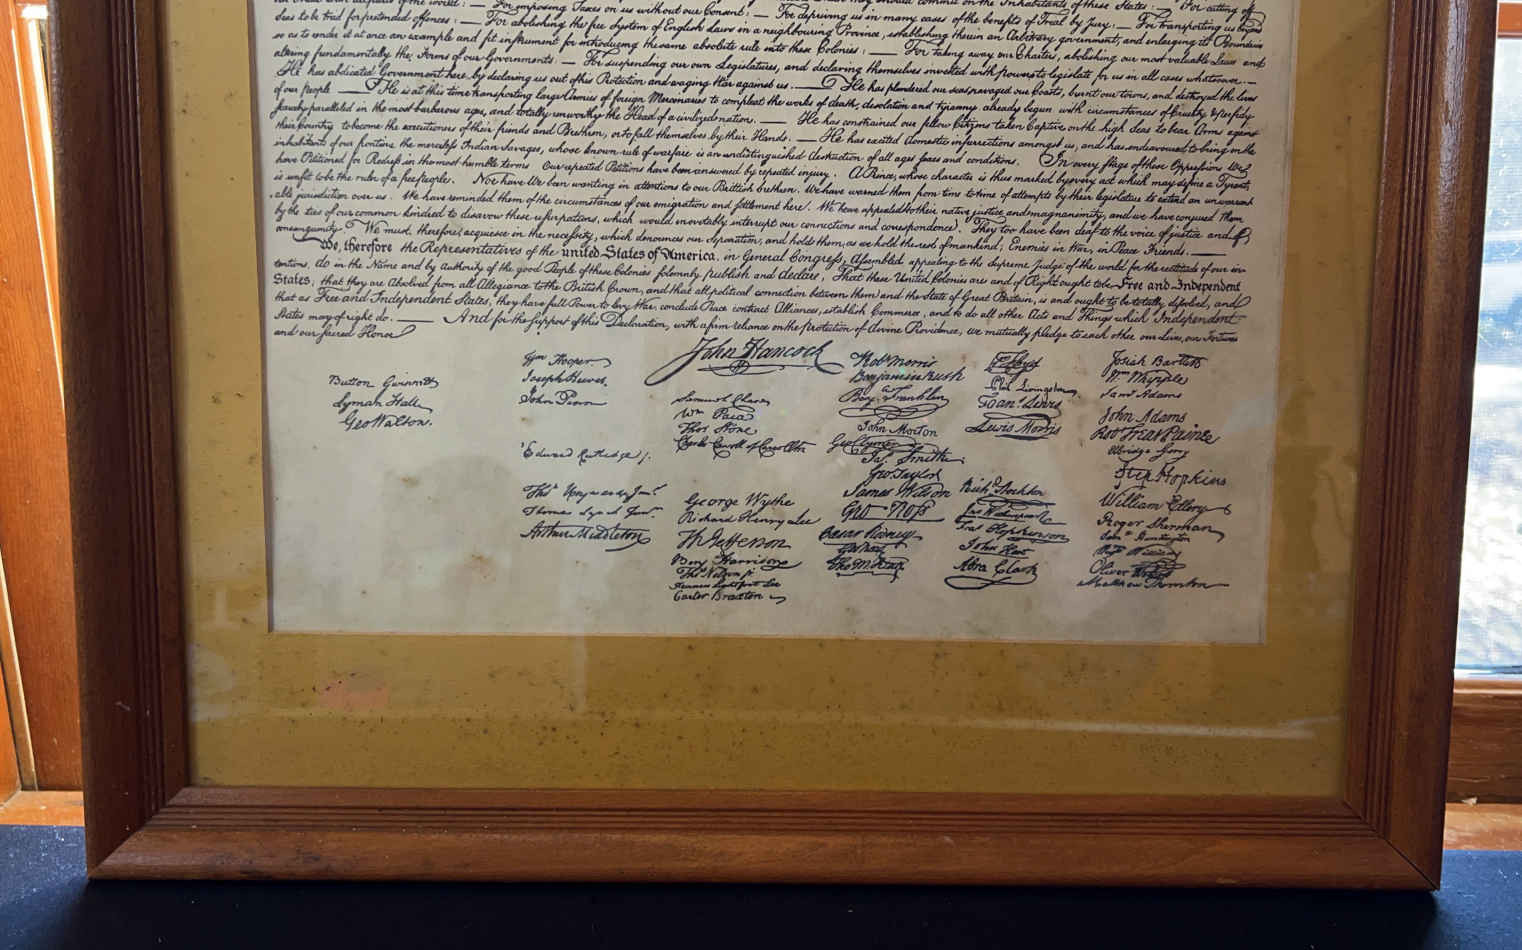 for imposing Taxes on us without our Consent: — For depriving us in many cases of the benefits of Trial by Jury: — For transporting us beyond
Seas to be tried for pretended offences: — For abolishing the free System of English Laws in a neighbouring Province, establishing therein an Arbitrary government, and enlarging its Boundaries
so as to render it at once an example and fit instrument for introducing the same absolute rule into these Colonies: — For taking away our Charters, abolishing our most valuable Laws and
altering fundamentally the Forms of our Governments: — For suspending our own Legislatures, and declaring themselves invested with power to legislate for us in all cases whatsoever. —
He has abdicated Government here, by declaring us out of his Protection and waging War against us. — He has plundered our seas, ravaged our Coasts, burnt our towns, and destroyed the lives
of our people — He is at this time transporting large Armies of foreign Mercenaries to compleat the works of death, desolation and tyranny already begun with circumstances of Cruelty & perfidy
parallelled in the most barbarous ages, and totally unworthy the Head of a civilized nation. — He has constrained our fellow Citizens taken Captive on the high Seas to bear Arms against
their Country to become the executioners of their friends and Brethren, or to fall themselves by their Hands. — He has excited domestic insurrections amongst us, and has endeavoured to bring on the
inhabitants of our frontiers the merciless Indian Savages, whose known rule of warfare is an undistinguished destruction of all ages sexes and conditions. In every stage of these Oppressions We
have Petitioned for Redress in the most humble terms Our repeated Petitions have been answered by repeated injury. A Prince, whose character is thus marked by every act which may define a Tyrant,
is unfit to be the ruler of a free people. Nor have We been wanting in attentions to our Brittish brethren. We have warned them from time to time of attempts by their legislature to extend an unwarrant
able jurisdiction over us. We have reminded them of the circumstances of our emigration and settlement here. We have appealed to their native justice and magnanimity, and we have conjured them
by the ties of our common kindred to disavow these usurpations, which would inevitably interrupt our connections and correspondence. They too have been deaf to the voice of justice and of
consanguinity. We must, therefore, acquiesce in the necessity, which denounces our Separation, and hold them, as we hold the rest of mankind, Enemies in War, in Peace Friends. —
We, therefore the Representatives of the united States of America, in General Congress, Assembled, appealing to the Supreme Judge of the world for the rectitude of our in-
tentions, do in the Name and by Authority of the good People of these Colonies solemnly publish and declare, That these United Colonies are and of Right ought to be Free and Independent
States; that they are Absolved from all Allegiance to the British Crown, and that all political connection between them and the State of Great Britain, is and ought to be totally dissolved, and
that as Free and Independent States, they have full Power to levy War, conclude Peace contract Alliances, establish Commerce, and to do all other Acts and Things which Independent
States may of right do. — And for the Support of this Declaration, with a firm reliance on the Protection of divine Providence, we mutually pledge to each other our Lives, our Fortunes
and our sacred Honor
Button Gwinnett
Lyman Hall
Geo Walton.
Wm Hooper
Joseph Hewes,
John Penn
Edward Rutledge /.
Thos Heyward Junr.
Thomas Lynch Junr.
Arthur Middleton
John Hancock
Samuel Chase
Wm Paca
Thos Stone
Charles Carroll of Carrollton
George Wythe
Richard Henry Lee
Th Jefferson
Benj Harrison
Thos Nelson jr
Francis Lightfoot Lee
Carter Braxton
Robt Morris
Benjamin Rush
Benj. Franklin
John Morton
Geo Clymer
Jas. Smith
Geo Taylor
James Wilson
Geo Ross
Caesar Rodney
Geo Read
Tho M:Kean
Phil. Livingston
Frans. Lewis
Lewis Morris
Richd Stockton
Jno Witherspoon
Fras Hopkinson
John Hart
Abra Clark
Josiah Bartlett
Wm Whipple
Saml Adams
John Adams
Robt Treat Paine
Elbridge Gerry
Step Hopkins
William Ellery
Roger Sherman
Saml Huntington
Wm Williams
Oliver Wolcott
Matthew Thornton